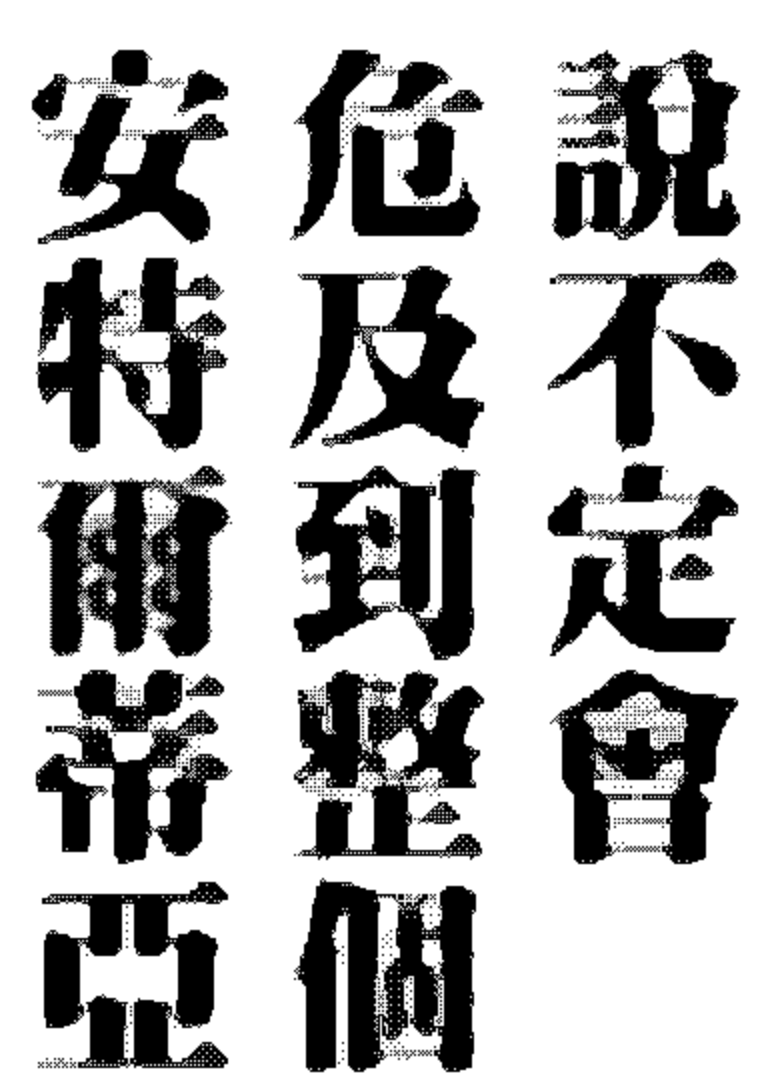 說不定會
危及到整個
安特爾蒂亞